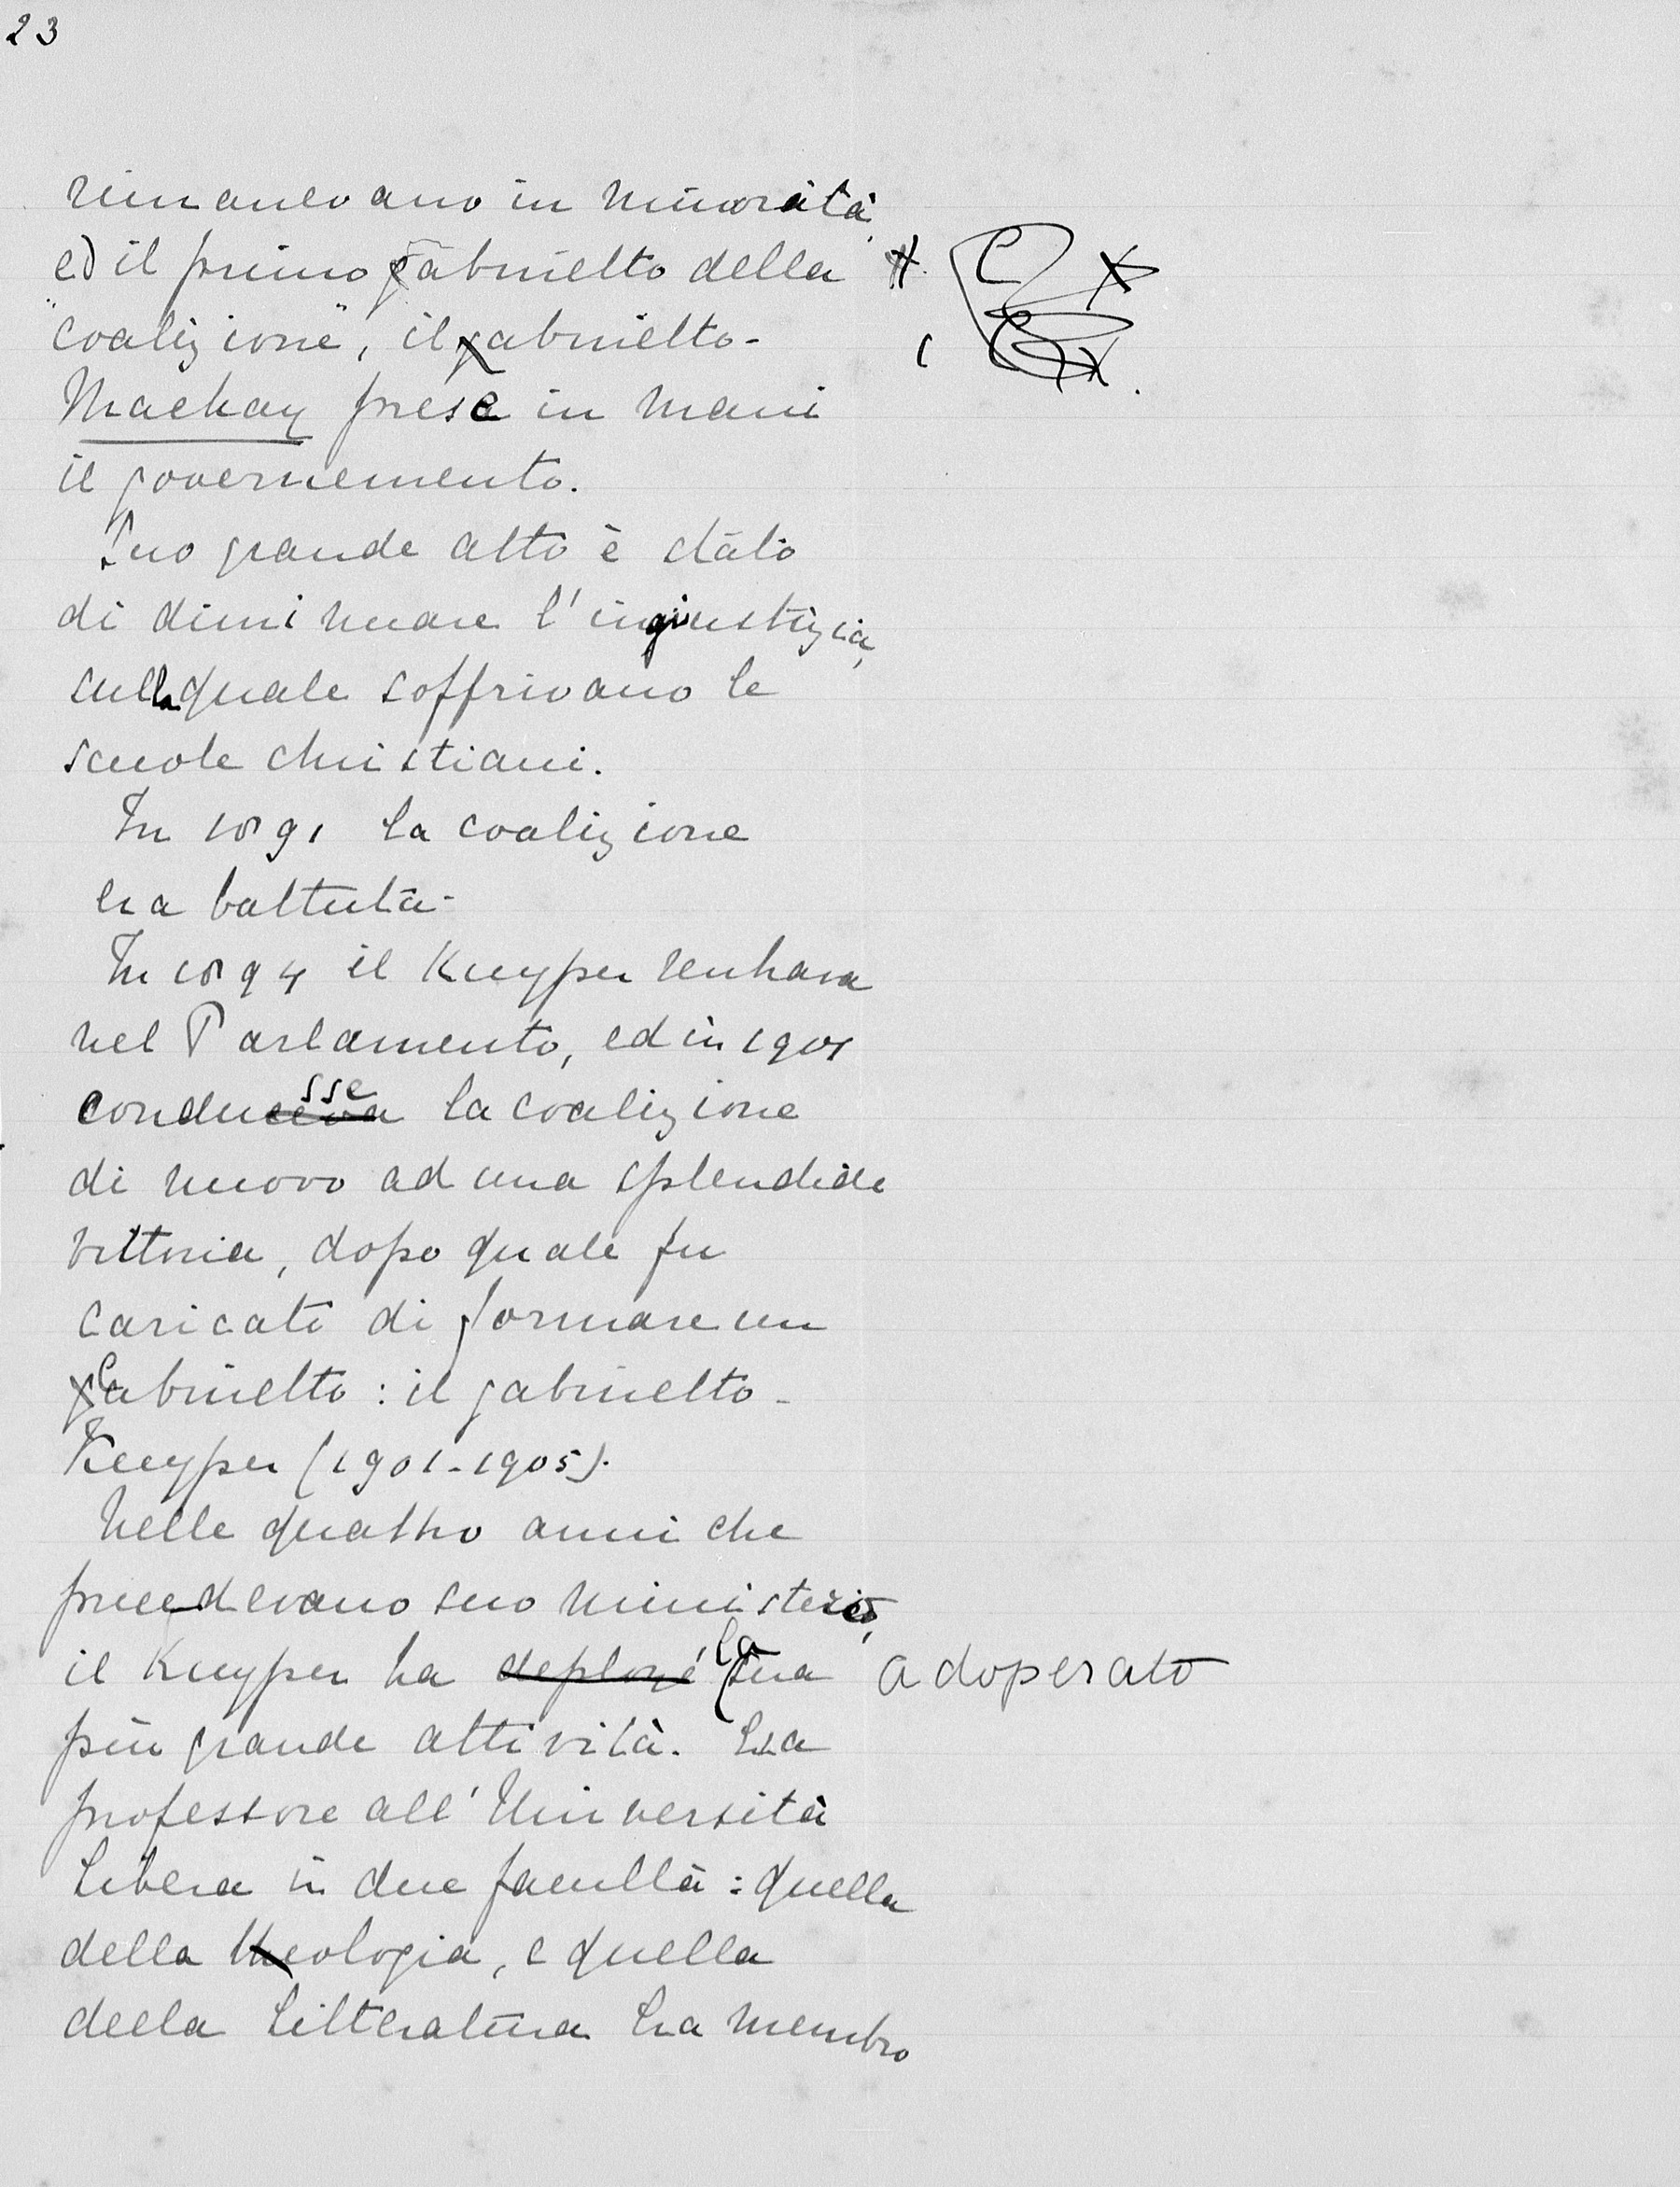 23
rimanevano in minorità,
ed il primo gabinetto della
"coalizione", il gabinetto-
Mackay prese in mani
il governemento.
Suo grande atto è stato
di diminuare l'ingiustizia,
sulla quale soffrivano le
scuole christiani.
In 1891 la coalizione
era battuta.
In 1894 il Kuyper rentrava
nel Parlamento, ed in 1901
conduceva sse la coalizione
di nuovo ad una splendide
vittoria, dopo quale fu
caricato di formare un
Gabinetto: il gabinetto-
Kuyper (1901-1905).
Nelle quattro anni che
precedevano suo ministerio,
il Kuyper ha deployé la sua adoperato
più grande attività. Era
professore all'Università
Libera in due facultà: quella
della theologia, e quella
della Litteratura. Era membro